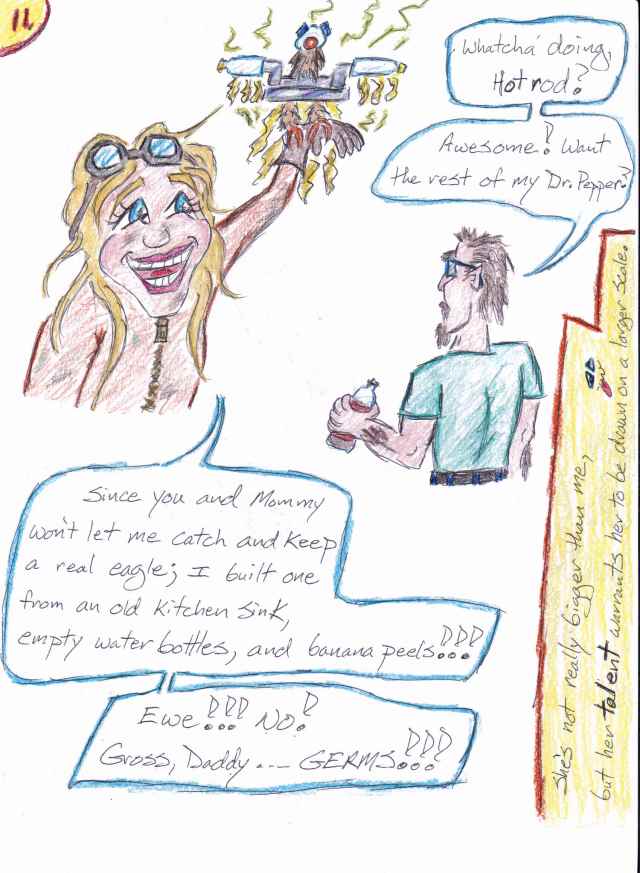 11
Whatcha' doing,
Hotrod?
Since you and Mommy
won't let me catch and keep
a real eagle; I built one
from an old kitchen sink,
empty water bottles, and banana peels!!!
Awesome! Want
the rest of my Dr. Pepper?
Ewe!!! No!
Gross, Daddy... GERMS!!!
She's not really bigger than me,
but her talent warrants her to be drawn on a larger scale.